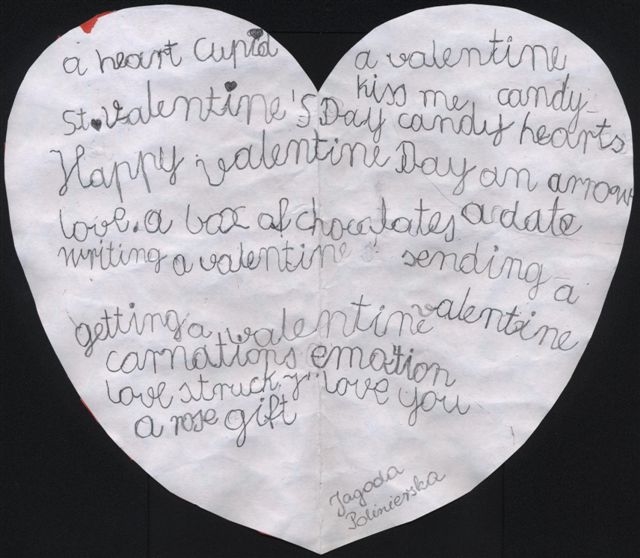 a heart Cupid a valentine
kiss me candy
St. Valentine's Day candy hearts
Happy valentine Day an arrow
love a box of chocolates a date
writing a valentine sending a
valentine
getting a valentine
carnations emotion
love struck I love you
a rose gift
Jagoda
Polinierska